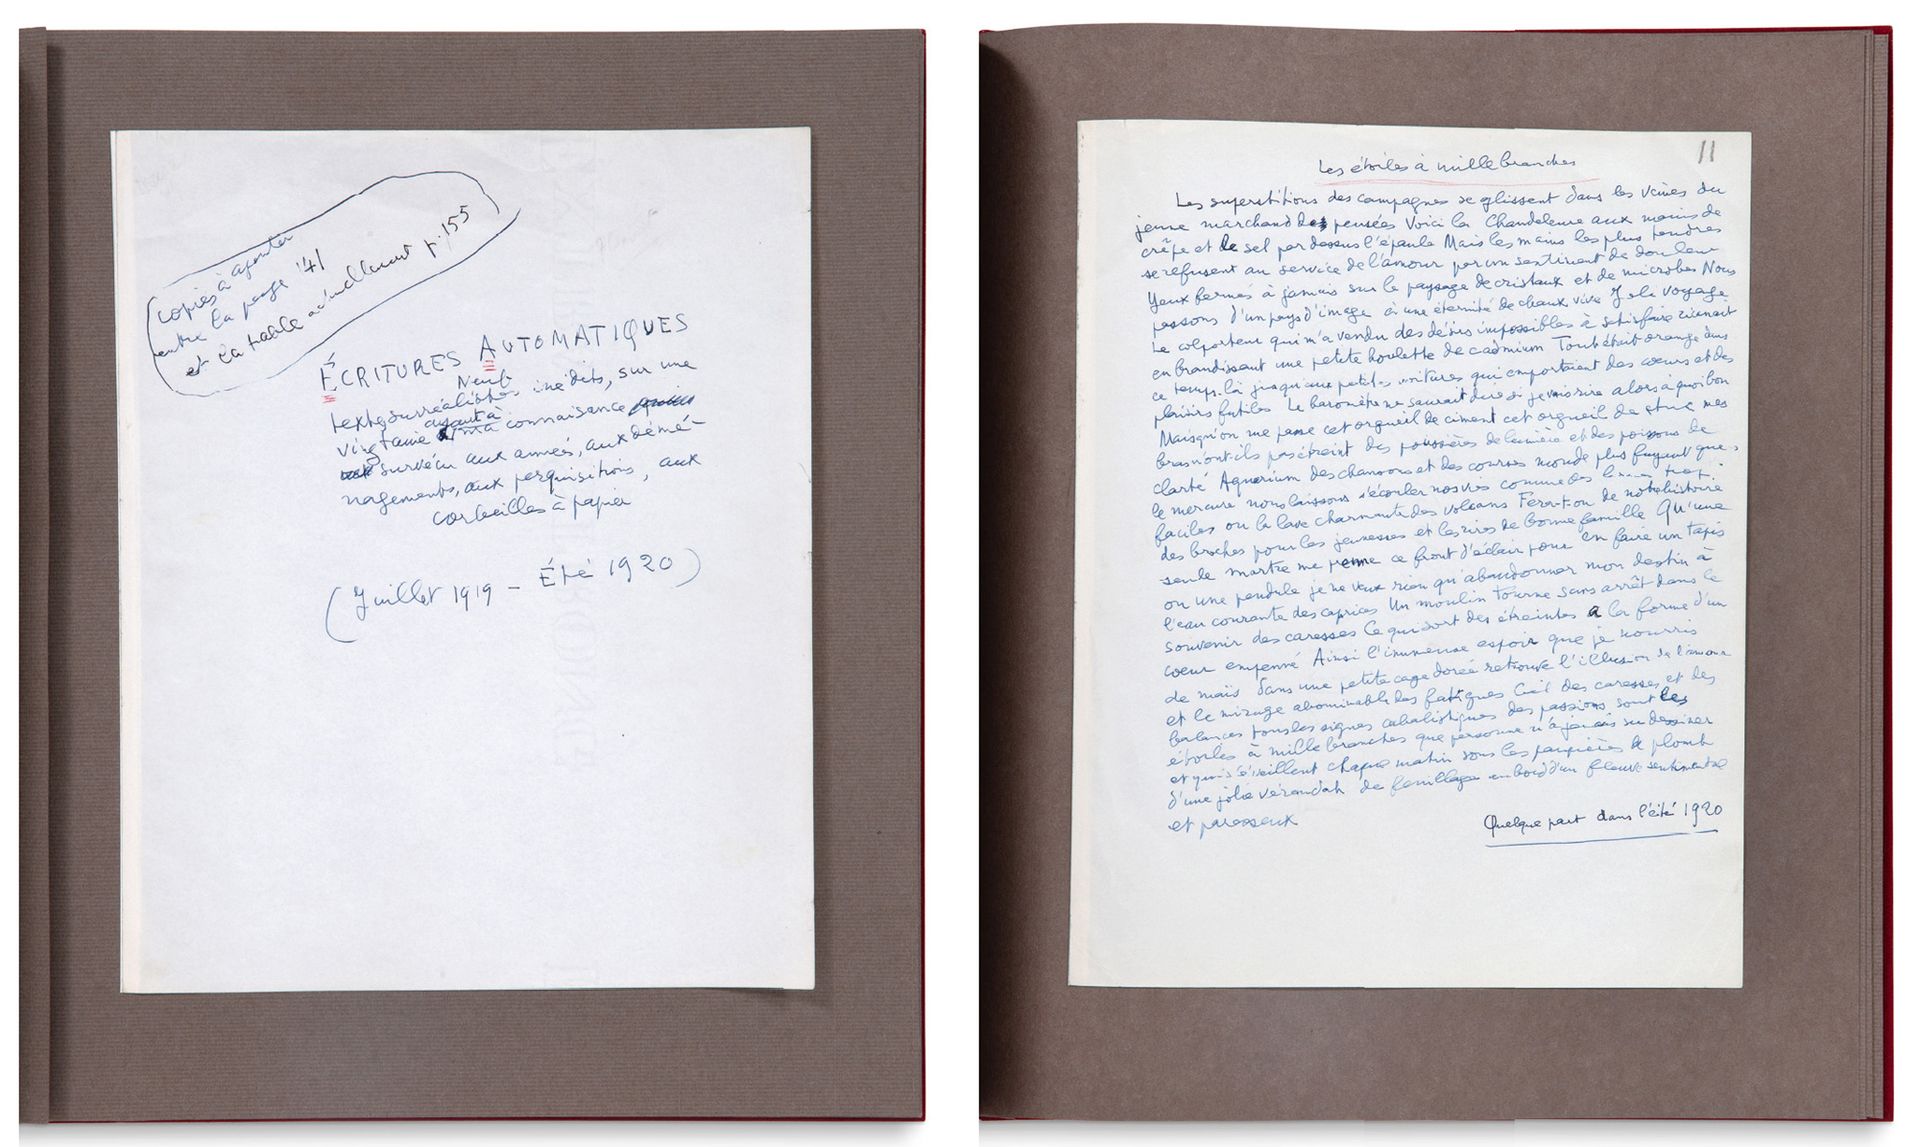 copies à ajouter
entre la page 141
et la table actuellement p. 155
ÉCRITURES AUTOMATIQUES
Neuf
textes surréalistes inédits, sur une
ayant à
vingtaine ma connaissance
survécu aux années, aux démé-
nagements, aux perquisitions, aux
corbeilles à papier
(Juillet 1919 – Été 1920)
11
Les étoiles à mille branches
Les superstitions des campagnes se glissent dans les veines du
jeune marchand de pensées Voici la Chandeleur aux mains de
crêpe et de sel par dessus l'épaule Mais les mains les plus tendres
se refusent au service de l'amour par un sentiment de douleur
Yeux fermés à jamais sur le paysage de cristaux et de microbes Nous
passons d'un pays d'image à une éternité de chaux vive Joli voyage
Le colporteur qui m'a vendu des désirs impossibles à satisfaire
en brandissant une petite houlette de cadmium Tout était orange dans
ce temps-là jusqu'aux petites voitures qui emportaient des cœurs et des
plaisirs futiles Le baromètre ne saurait dire si je vais rire alors à quoi bon
Mais qu'on me passe cet orgueil de ciment cet orgueil de stuc mes
bras n'ont-ils pas étreint des poussières de lumière et des poissons de
clarté Aquarium des chansons et des courses monde plus fuyant que
le mercure nous laissons s'écouler nos vies comme des trop
faciles ou la lave charmante des volcans Fera-t-on de notre histoire
des broches pour les jeunesses et les rires de bonne famille Qu'une
seule martre me prenne ce front d'éclair pour en faire un tapis
ou une pendule je ne veux rien qu'abandonner mon destin à
l'eau courante des caprices Un moulin tourne sans arrêt dans le
souvenir des caresses Ce qui sort des étreintes a la forme d'un
cœur empenné Ainsi l'immense espoir que je nourris
de maïs dans une petite cage dorée retrouve l'illusion de l'amour
et le mirage abominable des fatigues Ciel des caresses et des
balances tous les signes cabalistiques des passions sont les
étoiles à mille branches que personne n'a jamais su dessiner
et qui s'éveillent chaque matin sous les paupières de plomb
d'une jolie vérandah de feuillages au bord d'un fleuve sentimental
et paresseux
Quelque part dans l'été 1920